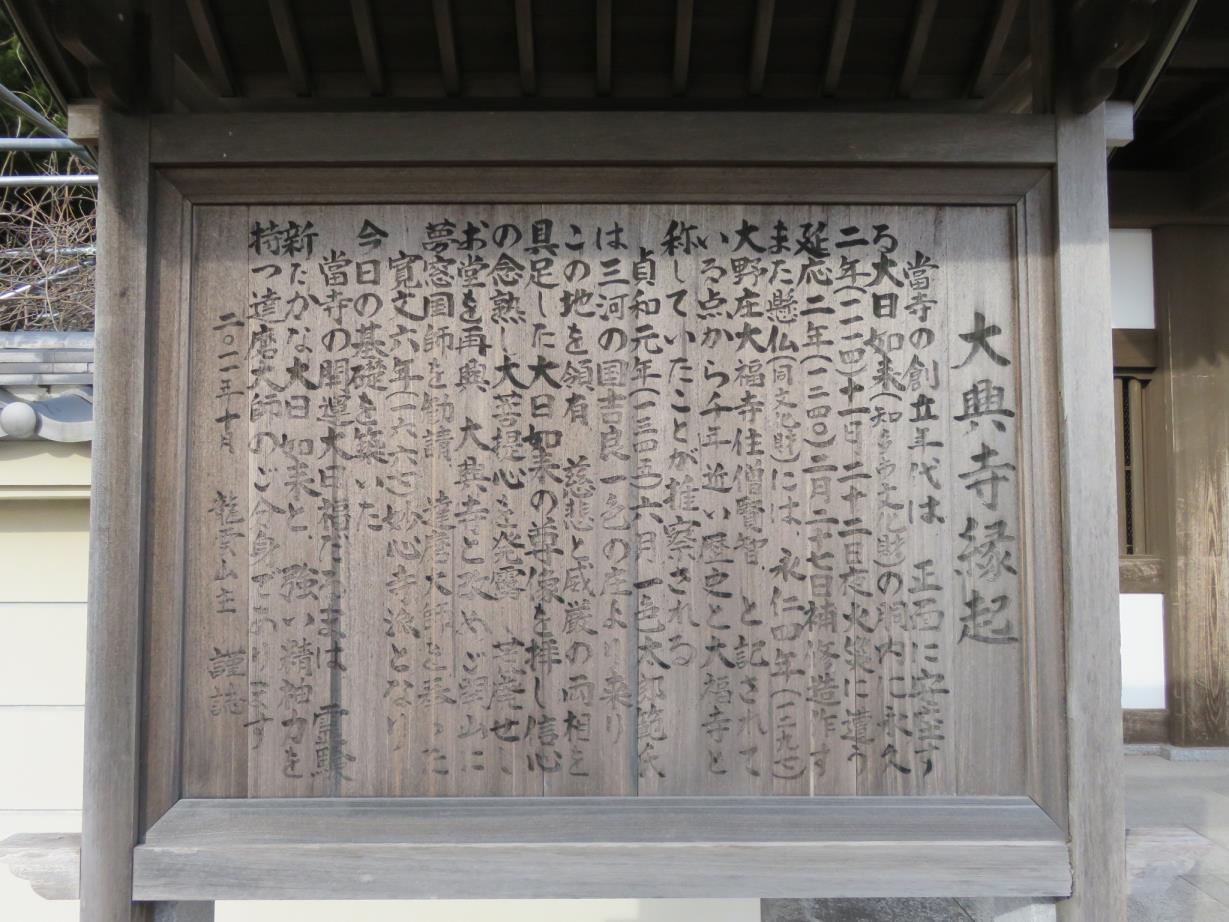 大興寺縁起
當寺の創立年代は 正面に安座す
る大日如来(知多市文化財)の胴内に永久
二年(一一一四)十一月二十二日夜火災に遭う
延応二年(一二四〇)二月二十七日補修造作す
また懸仏(同文化財)には 永仁四年(一二九七)
大野庄大福寺住僧賢智 と記されて
いる点から千年近い歴史と大福寺と
称していたことが推察される
貞和元年(一三四五)六月一色太郎範氏
は三河の国吉良一色の庄より来り
この地を領有 慈悲と威厳の両相を
具足した大日如来の尊像を拝し信心
の念熟し大菩提心を発露 荒廃せし
お堂を再興 大興寺と改めご開山に
夢窓国師を勧請 達磨大師を承った
寛文六年(一六六六)妙心寺派となり
今日の基礎を築いた
當寺の開運大日福だるまは 霊験
新たかな大日如来と 強い精神力を
持つ達磨大師のご分身であります
二〇一一年十月 龍雲山主 謹誌